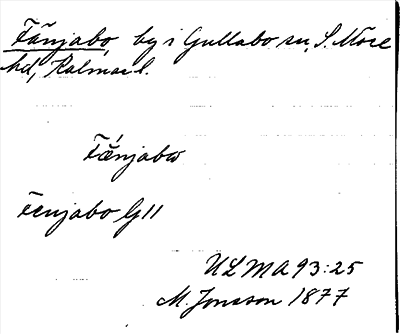 Fänjabo, by i Gullabo sn, S. Möre
hd, Kalmar l.
Fǽnjabω
Fenjabo G11
ULMA 93:25
M. Jonsson 1877